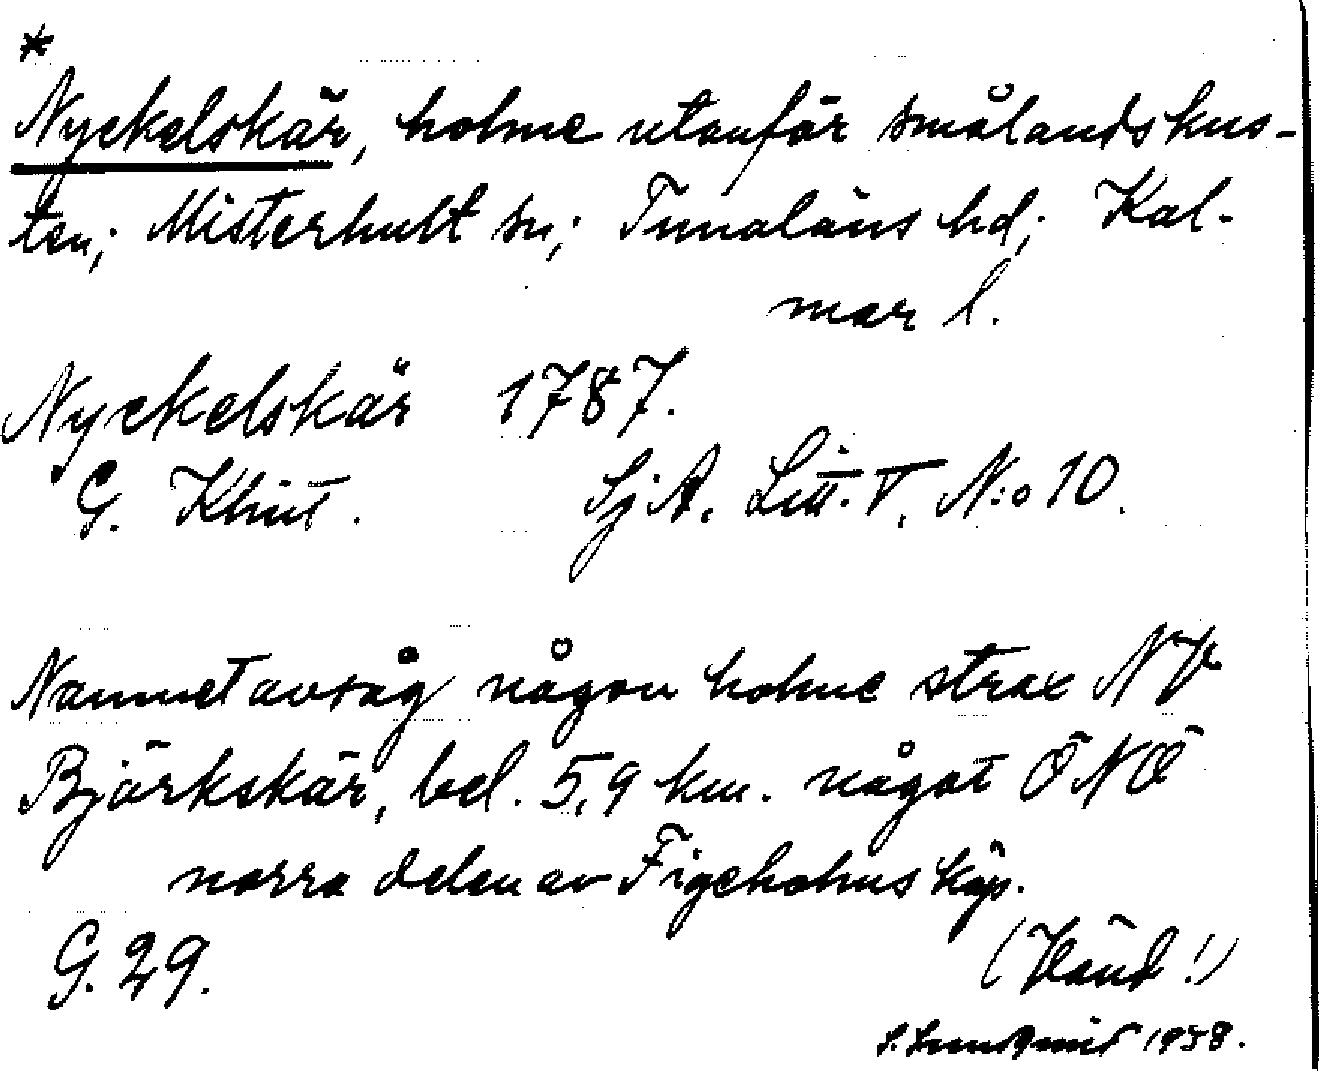 *
Nyckelskär, holme utanför smålandskus-
ten; Misterhult sn; Tunaläns hd; Kal-
mar l.
Nyckelskär 1787.
G. Klint. SjA. Litt. V. N:o 10.
Namnet avsåg någon holme strax NV
Björkskär, bel. 5,9 km. något ÖNÖ
norra delen av Figeholms köp.
G. 29.
(Vänd!)
S. Lundqvist 1958.